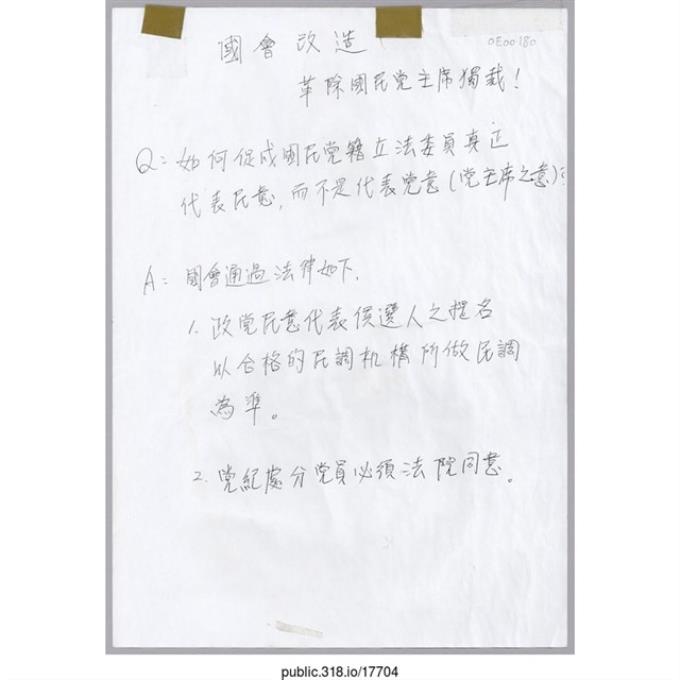 國會改造
OE00180
革除國民党主席獨裁！
Q：如何促成國民党籍立法委員真正
代表民意，而不是代表党意(党主席之意)?
A：國會通過法律如下.
1. 政党民意代表候選人之提名
以合格的民調机構所做民調
為準。
2. 党紀處分党員必須法院同意。
public.318.io/17704